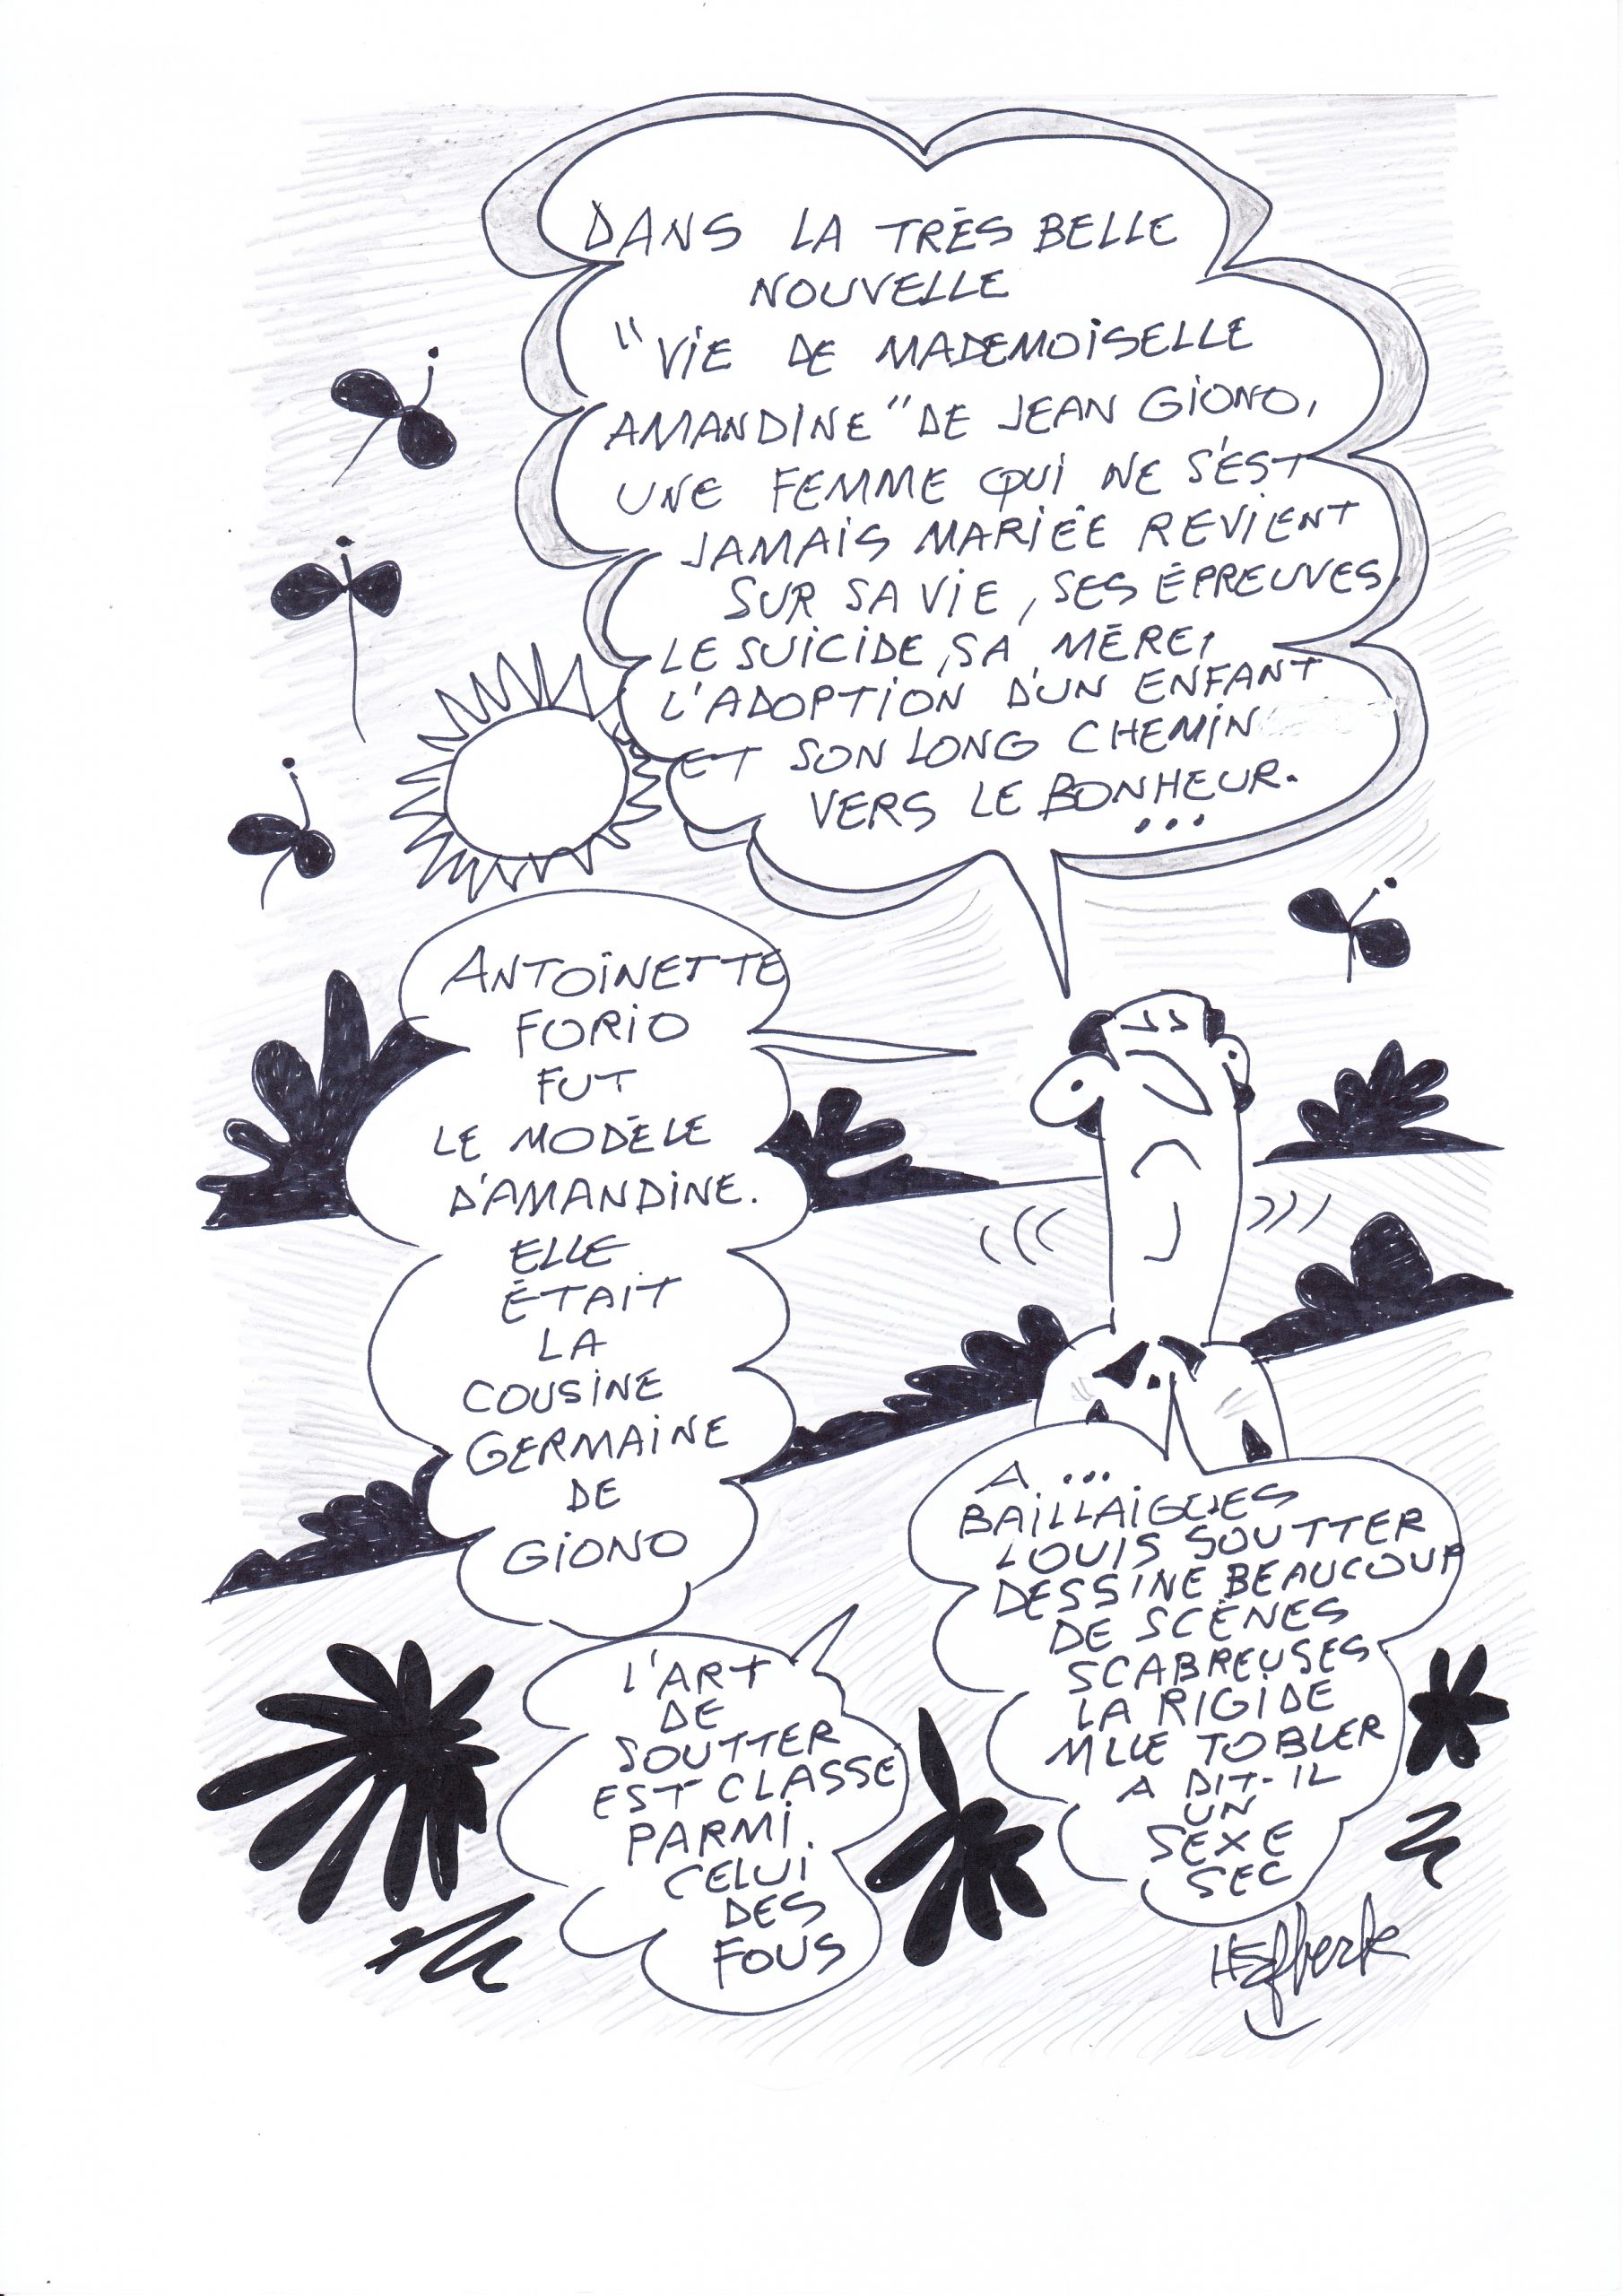 DANS LA TRÈS BELLE
NOUVELLE
"VIE DE MADEMOISELLE
AMANDINE" DE JEAN GIONO,
UNE FEMME QUI NE S'EST
JAMAIS MARIÉE REVIENT
SUR SA VIE, SES ÉPREUVES,
LE SUICIDE, SA MÈRE,
L'ADOPTION D'UN ENFANT
ET SON LONG CHEMIN
VERS LE BONHEUR.
...
ANTOINETTE
FORIO
FUT
LE MODÈLE
D'AMANDINE.
ELLE
ÉTAIT
LA
COUSINE
GERMAINE
DE
GIONO
A...
BAILLAIGUES
LOUIS SOUTTER
DESSINE BEAUCOUP
DE SCÈNES
SCABREUSES
LA RIGIDE
MLLE TOBLER
A DIT-IL
UN
SEXE
SEC
L'ART
DE
SOUTTER
EST CLASSE
PARMI
CELUI
DES
FOUS